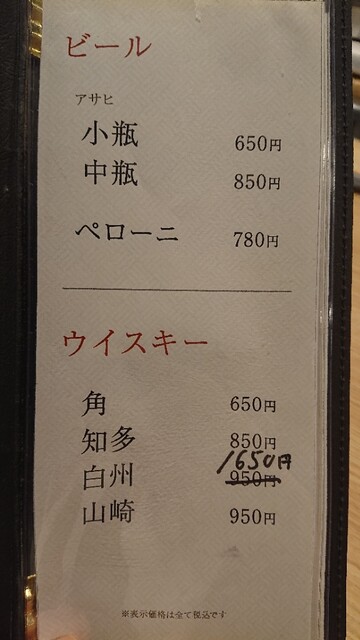 ビール
アサヒ
小瓶 650円
中瓶 850円
ペローニ 780円
ウイスキー
角 650円
知多 850円
1650円
白州 950円
山崎 950円
※表示価格は全て税込です